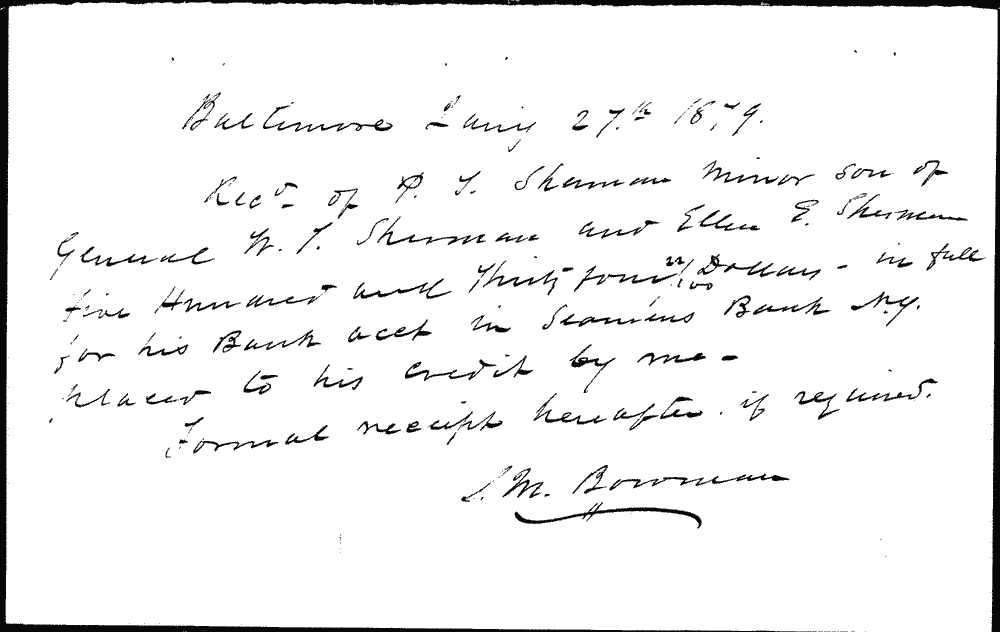 Baltimore Jany 27th 1879.
Recd of P. T. Sherman minor son of
General W. T. Sherman and Ellen E. Sherman
five Hundred and Thirty four 22/100 Dollars - in full
for his Bank acct in Seamens Bank N.Y.
placed to his credit by me -
Formal receipt hereafter if required.
S. M. Bowman